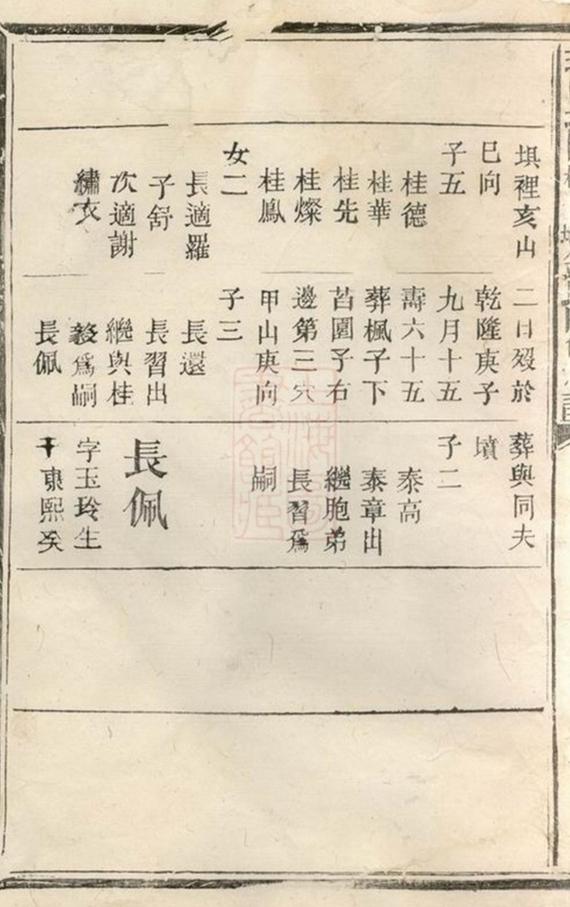 垻裡亥山
巳向
子五
桂德
桂華
桂先
桂燦
桂鳳
女二
長適羅
子舒
次適謝
繡衣
二日歿於
乾隆庚子
九月十五
壽六十五
葬楓子下
苕園子右
邊第三穴
甲山庚向
子三
長還
長習出
繼與桂
爲嗣
長佩
葬與同夫
墳
子二
泰高
泰章出
繼胞弟
長習爲
嗣
長佩
字玉玲生
于康熙癸